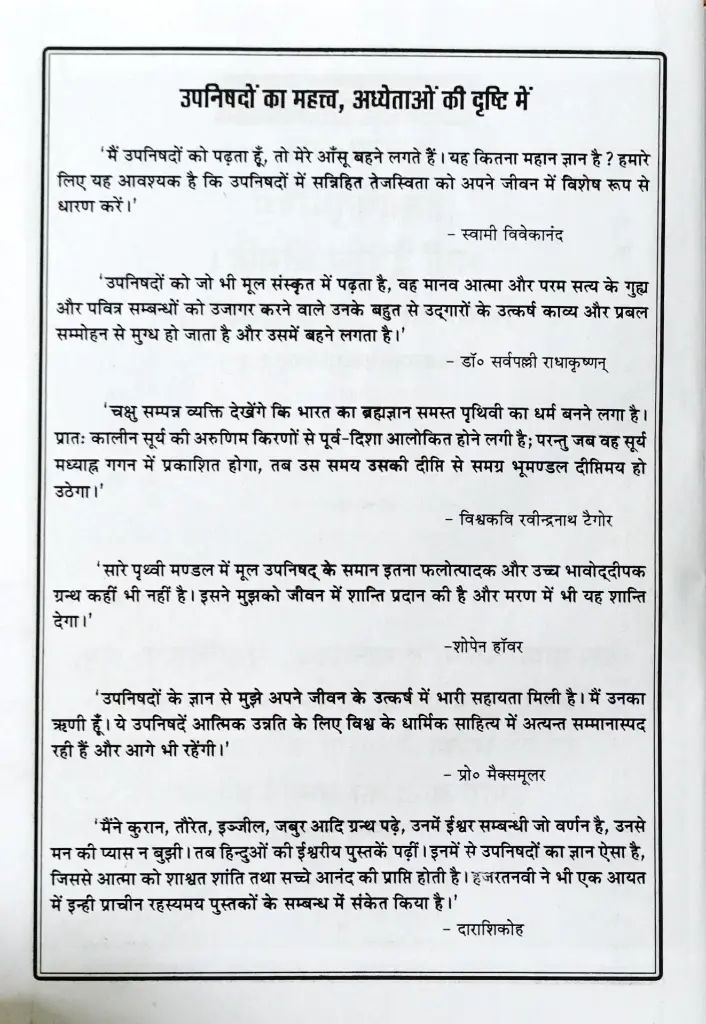 उपनिषदों का महत्त्व, अध्येताओं की दृष्टि में
‘मैं उपनिषदों को पढ़ता हूँ, तो मेरे आँसू बहने लगते हैं। यह कितना महान ज्ञान है ? हमारे
लिए यह आवश्यक है कि उपनिषदों में सन्निहित तेजस्विता को अपने जीवन में विशेष रूप से
धारण करें।’
– स्वामी विवेकानंद
‘उपनिषदों को जो भी मूल संस्कृत में पढ़ता है, वह मानव आत्मा और परम सत्य के गुह्य
और पवित्र सम्बन्धों को उजागर करने वाले उनके बहुत से उद्‌गारों के उत्कर्ष काव्य और प्रबल
सम्मोहन से मुग्ध हो जाता है और उसमें बहने लगता है।’
– डॉ० सर्वपल्ली राधाकृष्णन्
‘चक्षु सम्पन्न व्यक्ति देखेंगे कि भारत का ब्रह्मज्ञान समस्त पृथिवी का धर्म बनने लगा है।
प्रातः कालीन सूर्य की अरुणिम किरणों से पूर्व-दिशा आलोकित होने लगी है; परन्तु जब वह सूर्य
मध्याह्न गगन में प्रकाशित होगा, तब उस समय उसकी दीप्ति से समग्र भूमण्डल दीप्तिमय हो
उठेगा।’
– विश्वकवि रवीन्द्रनाथ टैगोर
‘सारे पृथ्वी मण्डल में मूल उपनिषद् के समान इतना फलोत्पादक और उच्च भावोद्‌दीपक
ग्रन्थ कहीं भी नहीं है। इसने मुझको जीवन में शान्ति प्रदान की है और मरण में भी यह शान्ति
देगा।’
–शोपेन हॉवर
‘उपनिषदों के ज्ञान से मुझे अपने जीवन के उत्कर्ष में भारी सहायता मिली है। मैं उनका
ऋणी हूँ। ये उपनिषदें आत्मिक उन्नति के लिए विश्व के धार्मिक साहित्य में अत्यन्त सम्मानास्पद
रही हैं और आगे भी रहेंगी।’
– प्रो० मैक्समूलर
‘मैंने कुरान, तौरेत, इञ्जील, जबुर आदि ग्रन्थ पढ़े, उनमें ईश्वर सम्बन्धी जो वर्णन है, उनसे
मन की प्यास न बुझी। तब हिन्दुओं की ईश्वरीय पुस्तकें पढ़ीं। इनमें से उपनिषदों का ज्ञान ऐसा है,
जिससे आत्मा को शाश्वत शांति तथा सच्चे आनंद की प्राप्ति होती है। हजरतनवी ने भी एक आयत
में इन्ही प्राचीन रहस्यमय पुस्तकों के सम्बन्ध में संकेत किया है।’
– दाराशिकोह